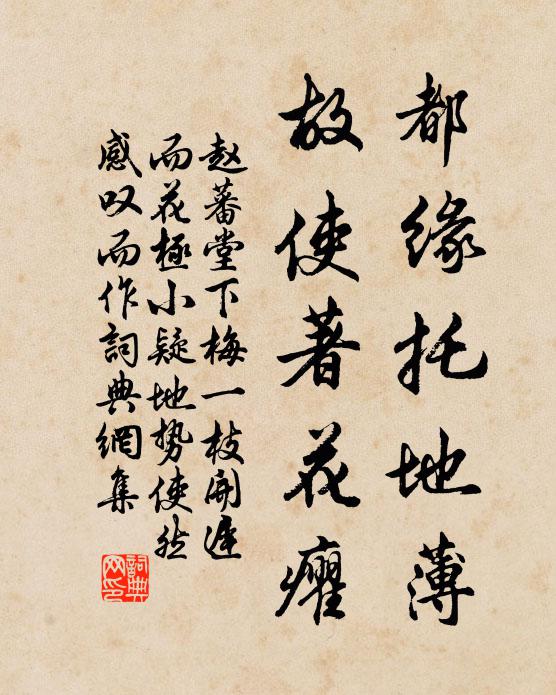 都缘托地薄
故使著花癯
赵蕃堂下梅一枝开遲
而花極小疑地势使然
感叹而作詞典網集
詞典网印